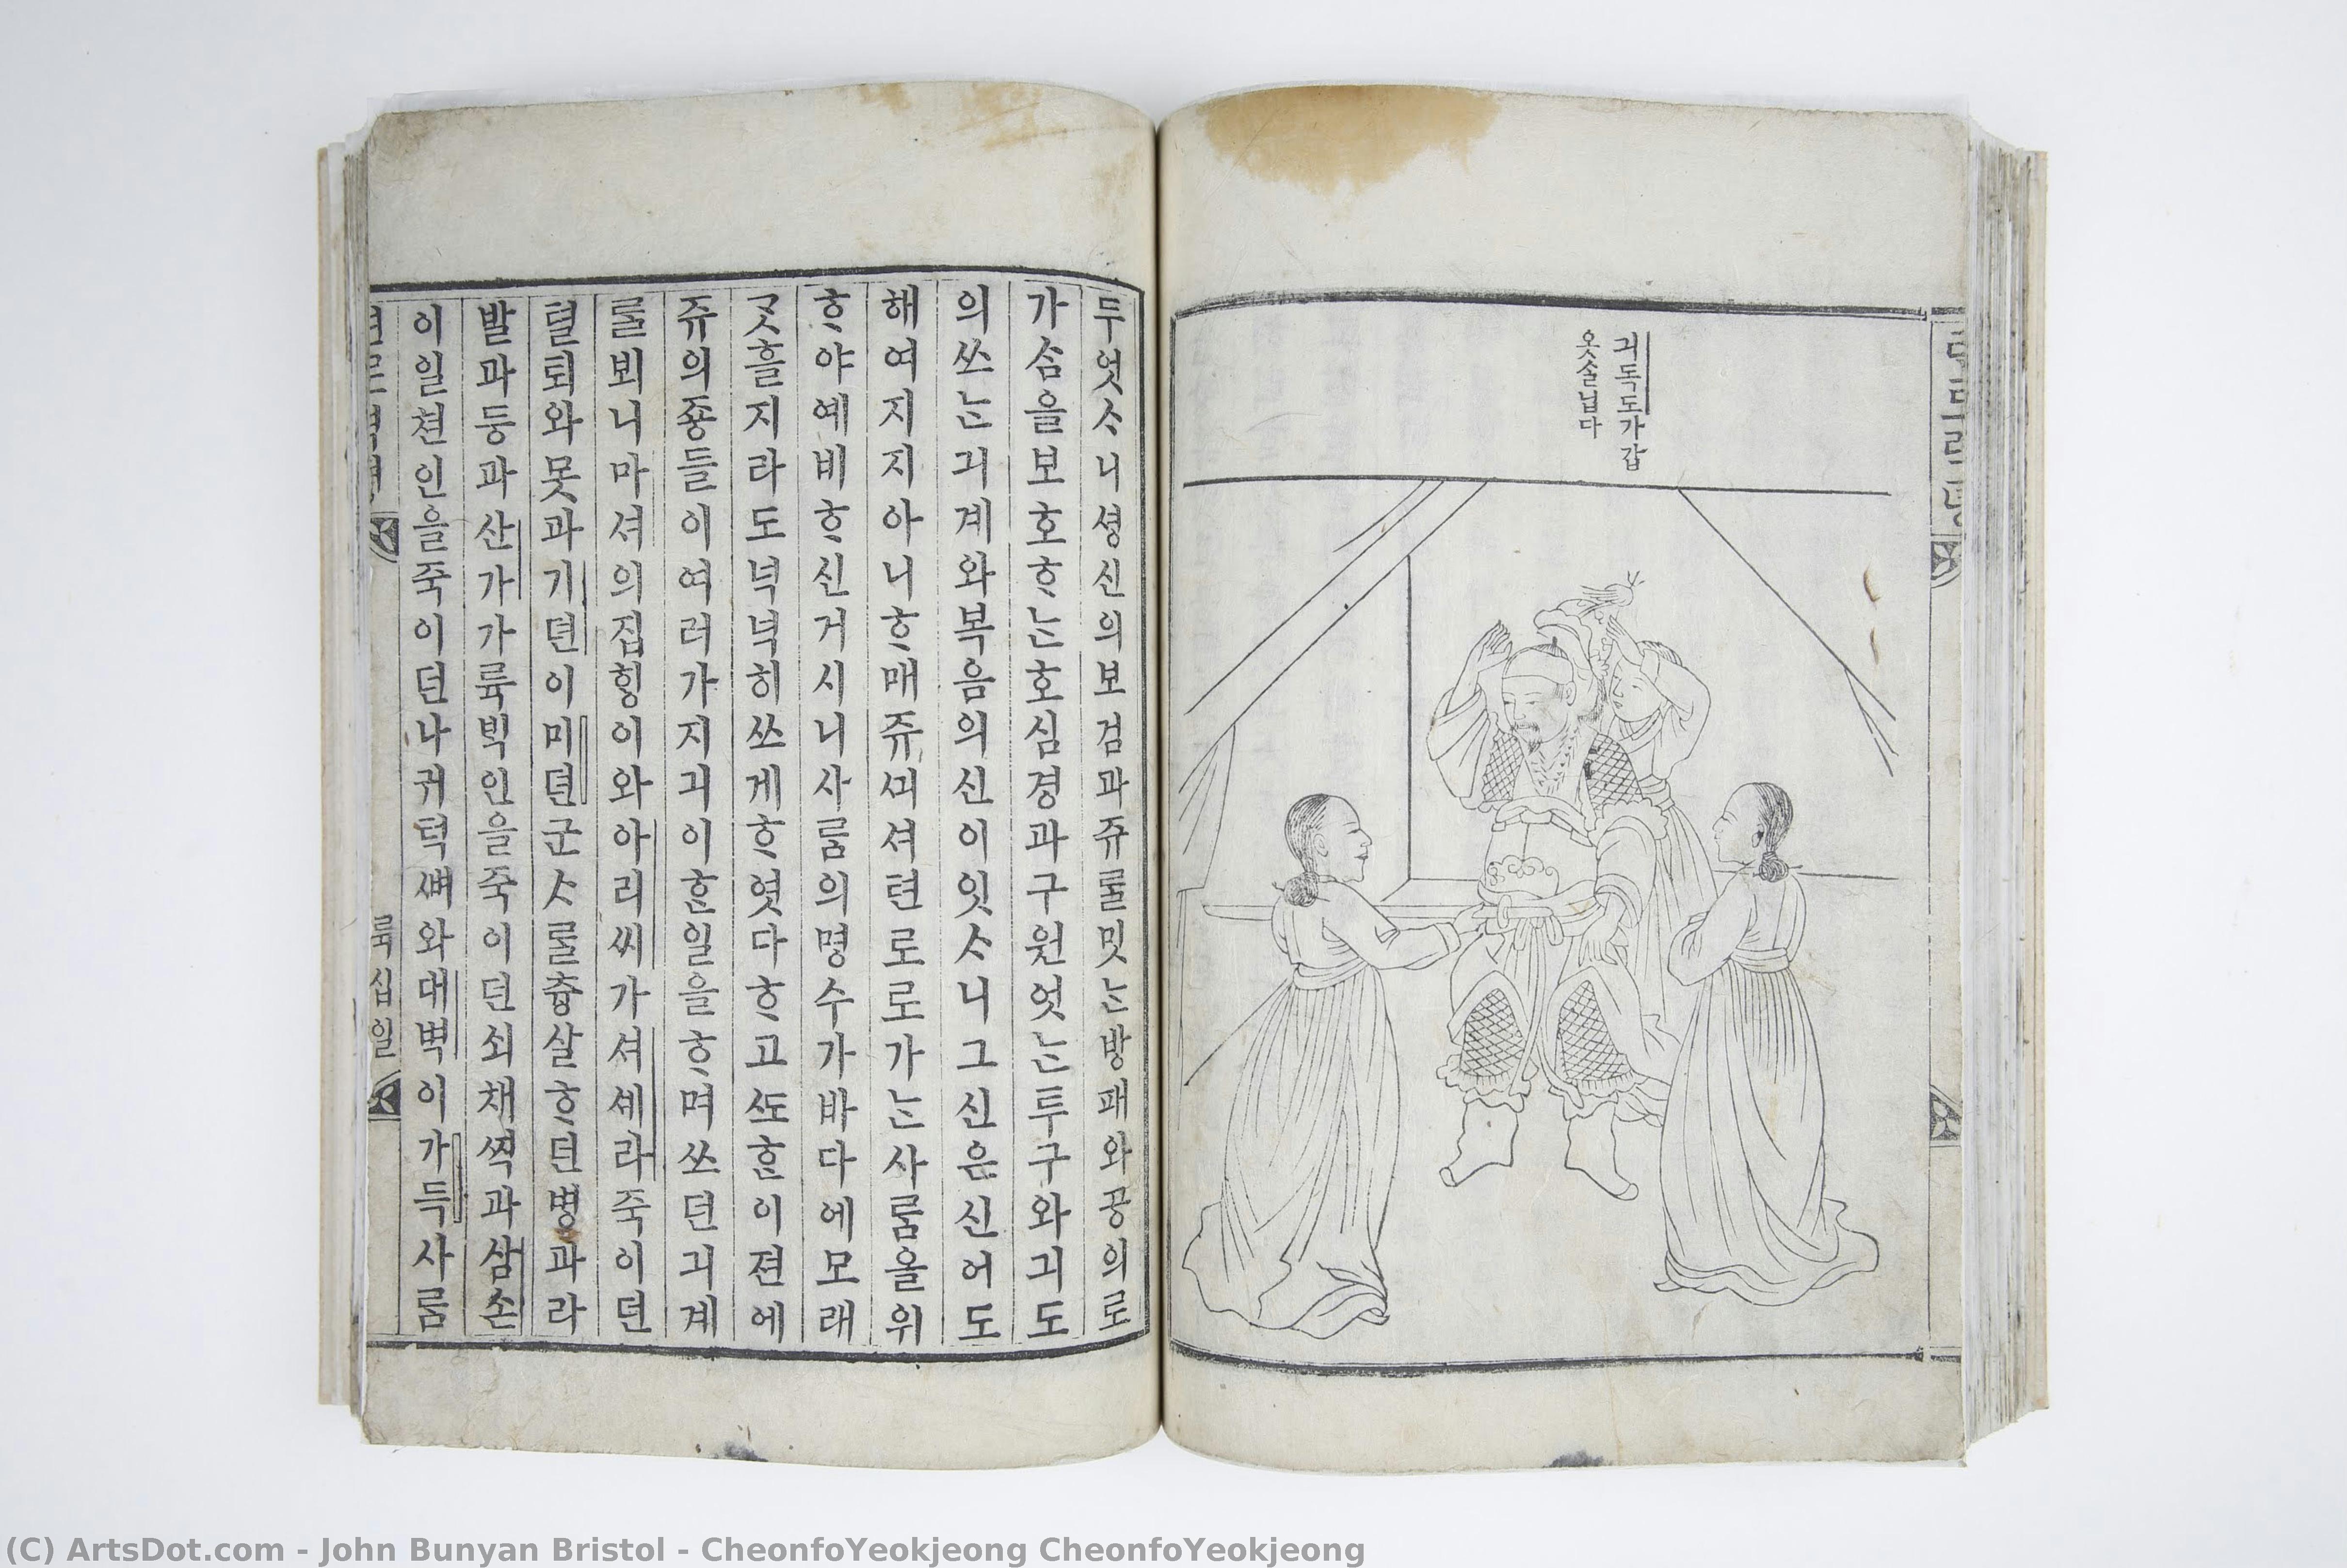 긔독도가갑
옷술닙다
두엇ᄉᆞ니셩신의보검과쥬ᄅᆞᆯ밋ᄂᆞᆫ방패와공의로
가ᄉᆞᆷ을보호ᄒᆞᄂᆞᆫ호심경과구원엇ᄂᆞᆫ투구와긔도
의쓰ᄂᆞᆫ긔계와복음의신이잇ᄉᆞ니그신은신어도
해여지지아니ᄒᆞ매쥬ᄭᅴ셔텬로로가ᄂᆞᆫ사ᄅᆞᆷ올위
ᄒᆞ야예비ᄒᆞ신거시니사ᄅᆞᆷ의명수가바다에모래
ᄀᆞᆺ흘지라도넉넉히쓰게ᄒᆞ엿다ᄒᆞ고ᄯᅩᄒᆞᆫ이젼에
쥬의죵들이여러가지긔이ᄒᆞᆫ일을ᄒᆞ며쓰던긔계
ᄅᆞᆯ뵈니마셔의집힝이와아리씨가셔셰라죽이던
텰퇴와못과기뎐이미뎐군ᄉᆞᄅᆞᆯ츙살ᄒᆞ던병과라
발과등과산가가륙빅인을죽이던쇠채찍과삼손
이일쳔인을죽이던나귀턱ᄲᅧ와대벽이가득사ᄅᆞᆷ
륙십일
(C) ArtsDot.com - John Bunyan Bristol - CheonfoYeokjeong CheonfoYeokjeong